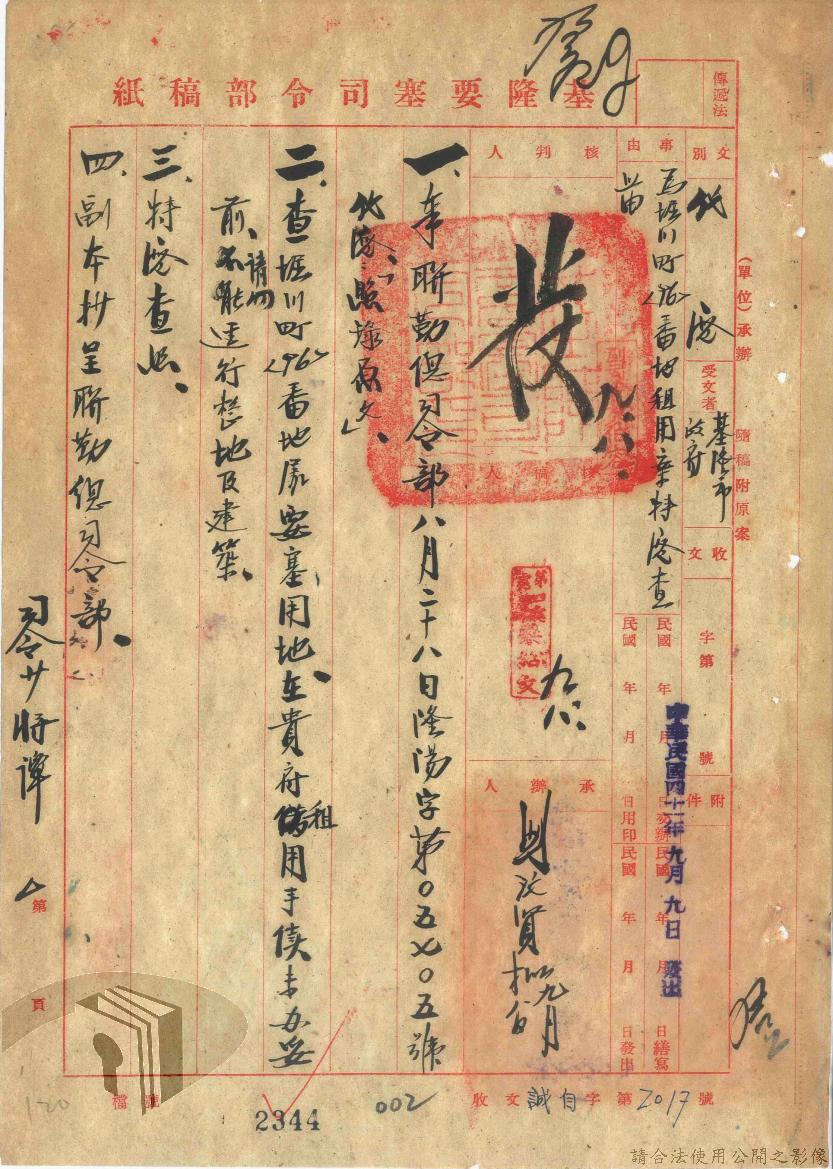 基隆要塞司令部稿紙
傳遞法
(單位)承辦
隨稿附原案
文別
代電
受文者
基隆市
政府
收文
字第
號
附件
事由
為堀川町<96>番地租用案特電查
照由
民國 年 月 日交辦
民國 年 月 日繕寫
民國 年 月 日用印
民國 年 月 日發出
中華民國四十一年九月九日發出
核判人
發
九.八.
核稿人
九.八.
承辦人
一、奉聯勤總司令部八月二十八日隆陽字第0五七0五號
代電「照錄原文」、
二、查堀川町<96>番地屬要塞用地、在貴府租用手續未辦妥
前、請勿進行整地及建築、
三、特電查照、
四、副本抄呈聯勤總司令部、
司令少將譚
第
頁
檔
號
2344
002
120
收文誠自字第2017號
請合法使用公開之影像